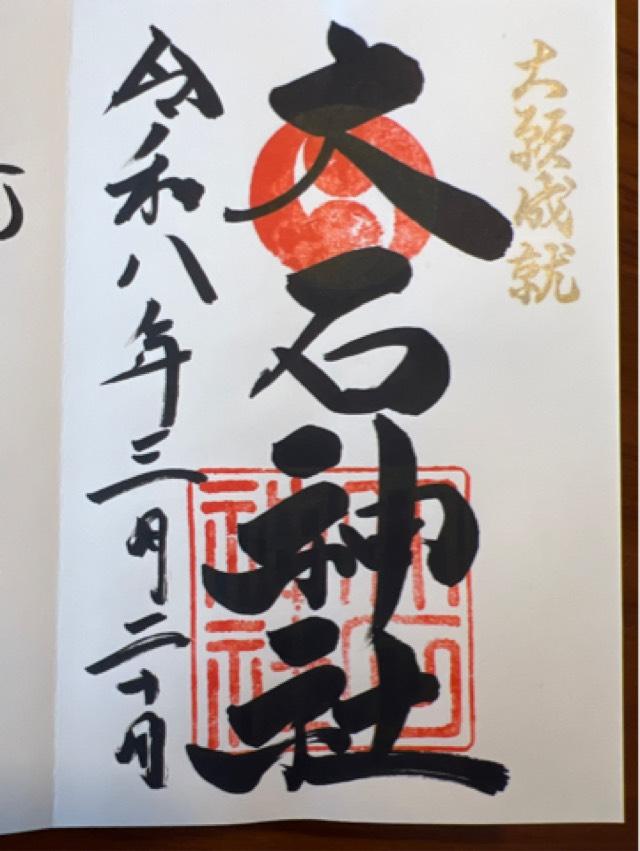 大願成就
大石神社
令和八年三月二十日
大石
神社